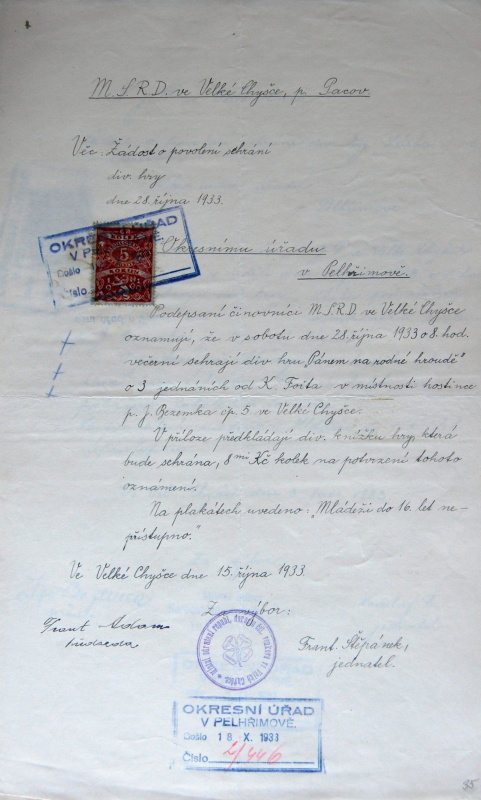 M.S.R.D. ve Velké Chyšce, p. Pacov.
Věc: Žádost o povolení sehrání
div. hry
dne 28. října 1933.
OKRESNÍ ÚŘAD
V PELHŘIMOVĚ
Došlo
Číslo
KOLEK
5
KORUN
Okresnímu úřadu
v Pelhřimově.
Podepsaní činovníci M.S.R.D. ve Velké Chyšce
oznamují, že v sobotu dne 28. října 1933 o 8. hod.
večerní sehrají div. hru "Pánem na rodné hroudě"
o 3 jednáních od K. Foita v místnosti hostince
p. J. Bezemka čp. 5 ve Velké Chyšce.
V příloze předkládají div. knížku hry, která
bude sehrána, 8 mi Kč kolek na potvrzení tohoto
oznámení.
Na plakátech uvedeno: „Mládeži do 16. let ne-
přístupno."
Ve Velké Chyšce dne 15. října 1933.
Za výbor:
Frant. Adam
předseda
Frant. Štěpánek,
jednatel.
OKRESNÍ ÚŘAD
V PELHŘIMOVĚ.
Došlo 18 X. 1933
Číslo
35